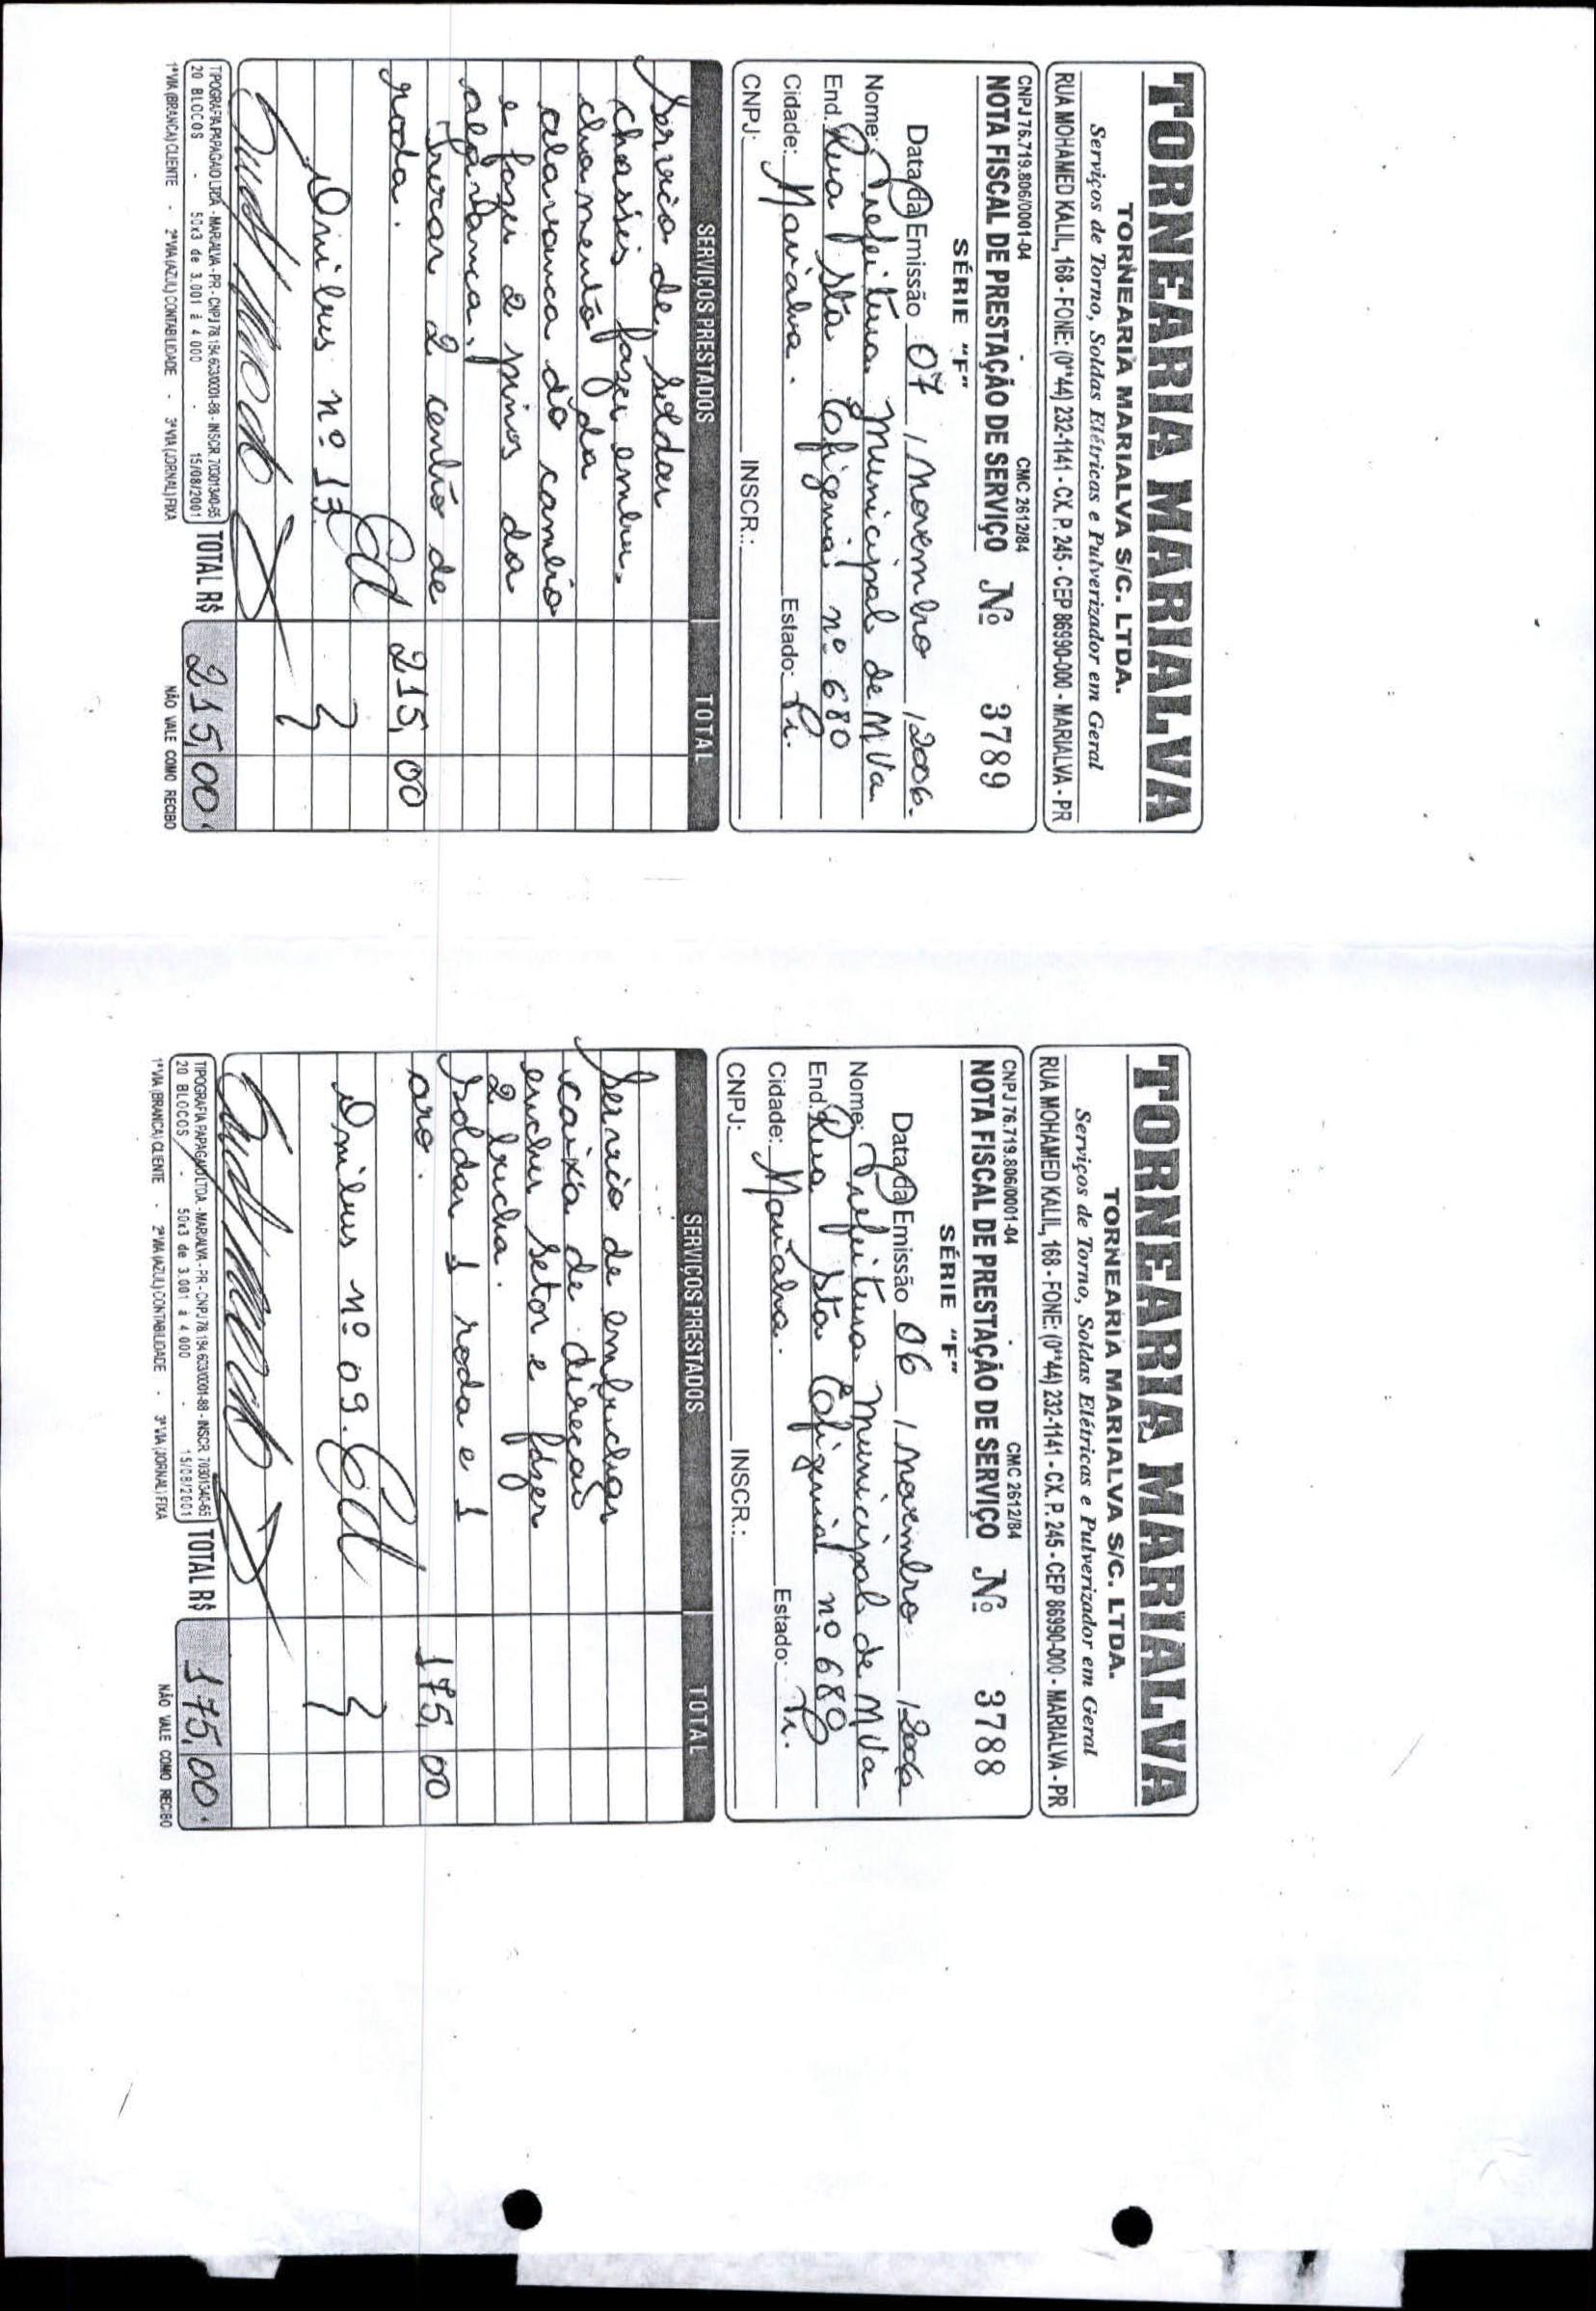 TORNEARIA MARIALVA
TORNEARIA MARIALVA S/C. LTDA.
Serviços de Torno, Soldas Elétricas e Pulverizador em Geral
RUA MOHAMED KALIL, 168 - FONE: (0**44) 232-1141 - CX. P. 245 - CEP 86990-000 - MARIALVA - PR
CNPJ 76.719.806/0001-04 - CMC 2612/84
NOTA FISCAL DE PRESTAÇÃO DE SERVIÇO Nº 3789
SÉRIE "F"
Data da Emissão 07 / Novembro / 2006.
Nome: Prefeitura Municipal de M Va.
End. Rua Sta Efigenia nº 680
Cidade: Marialva. Estado: Pr.
CNPJ: INSCR.:
SERVIÇOS PRESTADOS TOTAL
Serviço de soldar
chassis fazer embu-
chamento da
alavanca do cambio
e fazer 2 pinos da
alavanca.
Trocar 2 centro de
roda. 215,00
Onibus nº 13.
TIPOGRAFIA PAPAGAIO LTDA - MARIALVA - PR - CNPJ 78.194.603/0001-88 - INSCR. 70301340-65
20 BLOCOS - 50x3 de 3.001 à 4.000 - 15/08/2001
TOTAL R$ 215,00
1ª VIA (BRANCA) CLIENTE - 2ª VIA (AZUL) CONTABILIDADE - 3ª VIA (JORNAL) FIXA
NÃO VALE COMO RECIBO
TORNEARIA MARIALVA
TORNEARIA MARIALVA S/C. LTDA.
Serviços de Torno, Soldas Elétricas e Pulverizador em Geral
RUA MOHAMED KALIL, 168 - FONE: (0**44) 232-1141 - CX. P. 245 - CEP 86990-000 - MARIALVA - PR
CNPJ 76.719.806/0001-04 - CMC 2612/84
NOTA FISCAL DE PRESTAÇÃO DE SERVIÇO Nº 3788
SÉRIE "F"
Data da Emissão 06 / Novembro / 2006
Nome: Prefeitura Municipal de M Va.
End. Rua Sta Efigenia nº 680
Cidade: Marialva. Estado: Pr.
CNPJ: INSCR.:
SERVIÇOS PRESTADOS TOTAL
Serviço de embuchar
caixa de direção
encher setor e fazer
2 bucha.
Soldar 1 roda e 1
aro. 175,00
Onibus nº 09.
TIPOGRAFIA PAPAGAIO LTDA - MARIALVA - PR - CNPJ 78.194.603/0001-88 - INSCR. 70301340-65
20 BLOCOS - 50x3 de 3.001 à 4.000 - 15/08/2001
TOTAL R$ 175,00
1ª VIA (BRANCA) CLIENTE - 2ª VIA (AZUL) CONTABILIDADE - 3ª VIA (JORNAL) FIXA
NÃO VALE COMO RECIBO